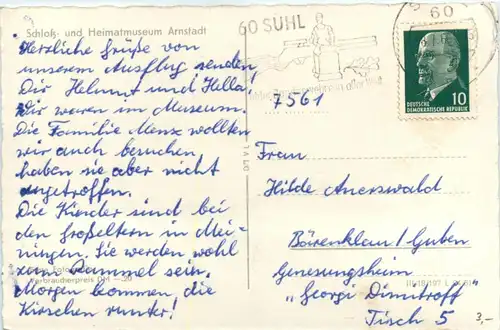 Schloß- und Heimatmuseum Arnstadt
Herzliche Grüße von
unserem Ausflug senden
Dir Helmut und Hella.
Wir waren im Museum.
Die Familie Menz wollten
wir auch besuchen
haben sie aber nicht
angetroffen.
Die Kinder sind bei
den Großeltern in Mei-
ningen. Sie werden wohl
zum Bammel sein.
Verbraucherpreis DM -,20
Morgen kommen die
Kirschen runter!
60 SUHL
60
DEUTSCHE
DEMOKRATISCHE REPUBLIK
10
7561
Frau
Hilde Auerswald
Bärenklau / Guben
Genesungsheim
"Georgi Dimitroff"
Tisch 5
3,-